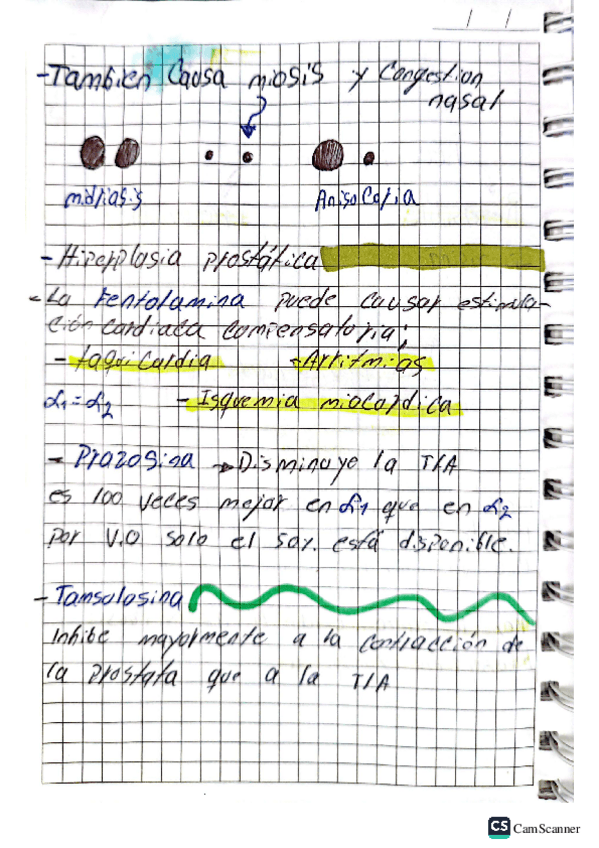 / /
CamS
-Tambien Causa miosis y Congestion
nasal
midriasis
Anisocoria
- Hiperplasia prostática
- La Fentolamina puede causar estimula-
ción cardiaca compensatoria;
- taquicardia - Arritmias
α1=α2 - Isquemia miocardica
- Prazosina → Disminuye la T/A
es 100 veces mejor en α1 que en α2
por V.O solo el 50%. está disponible.
- Tamsulosina
Inhibe mayormente a la contracción de
la prostata que a la T/A
CS CamScanner